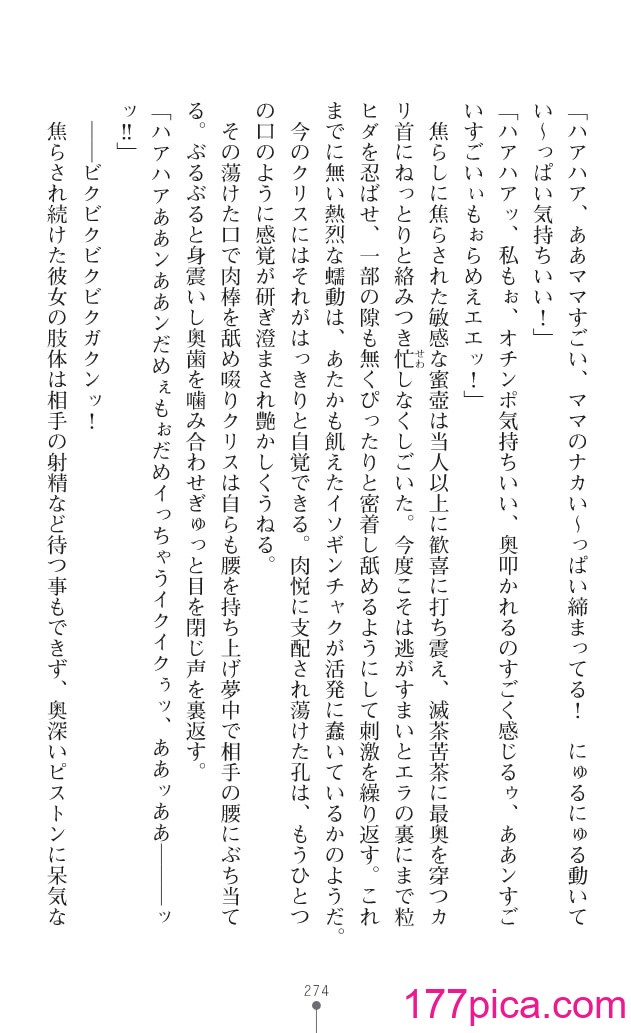 「ハアハア、ああママすごい、ママのナカい〜っぱい締まってる！　にゅるにゅる動いて
い〜っぱい気持ちいい！」
「ハアハアッ、私もぉ、オチンポ気持ちいい、奥叩かれるのすごく感じるゥ、ああンすご
いすごいぃもぉらめえエエッ！」
焦らしに焦らされた敏感な蜜壺は当人以上に歓喜に打ち震え、滅茶苦茶に最奥を穿つカ
リ首にねっとりと絡みつき忙しなくしごいた。今度こそは逃がすまいとエラの裏にまで粒
せわ
ヒダを忍ばせ、一部の隙も無くぴったりと密着し舐めるようにして刺激を繰り返す。これ
までに無い熱烈な蠕動は、あたかも飢えたイソギンチャクが活発に蠢いているかのようだ。
今のクリスにはそれがはっきりと自覚できる。肉悦に支配され蕩けた孔は、もうひとつ
の口のように感覚が研ぎ澄まされ艶かしくうねる。
その蕩けた口で肉棒を舐め啜りクリスは自らも腰を持ち上げ夢中で相手の腰にぶち当て
る。ぶるぶると身震いし奥歯を噛み合わせぎゅっと目を閉じ声を裏返す。
「ハアハアああンああンだめぇもぉだめイっちゃうイクイクぅッ、ああッああ――――ッ
ッ!!」
――ビクビクビクビクガクンッ！
焦らされ続けた彼女の肢体は相手の射精など待つ事もできず、奥深いピストンに呆気な
274
177pica.com